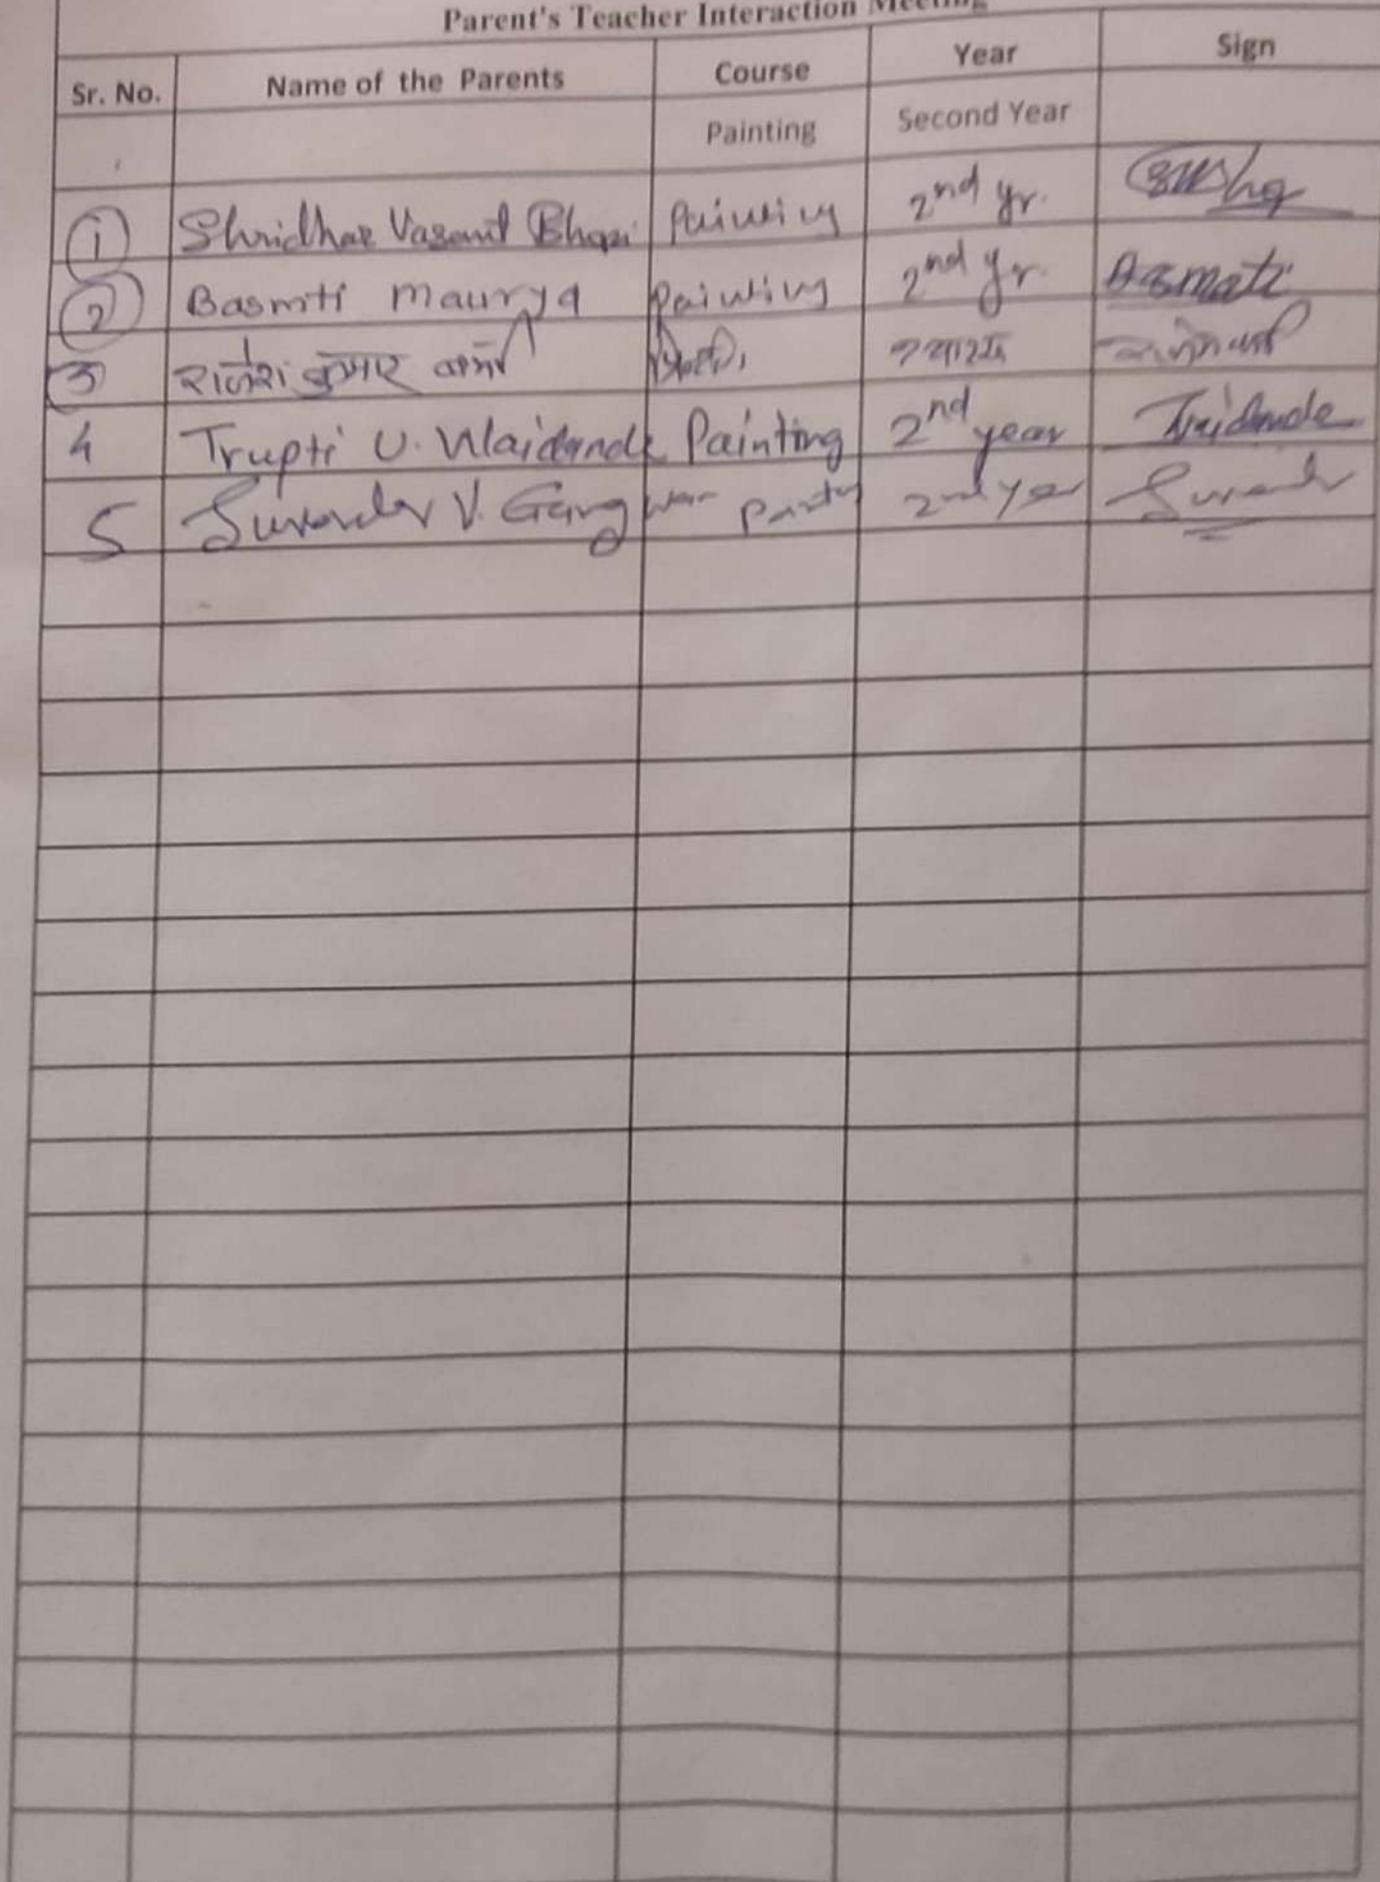 Parent's Teacher Interaction Meeting
Sr. No. Name of the Parents Course Year Sign
Painting Second Year
1 Shridhar Vasant Painting 2nd yr.
2 Basmti Maurya Painting 2nd yr. Asmati
3 राजेश कुमार वर्मा
4 Trupti U. Waidande Painting 2nd year Waidande
5 Surender V. Gangwar Painting 2nd year Surender